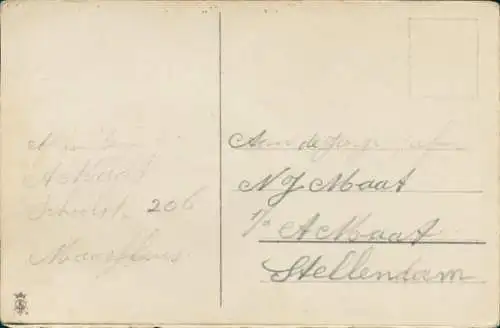 A Maat
Schoolst. 206
Maassluis
Aan de
N J Maat
A Maat
Stellendam